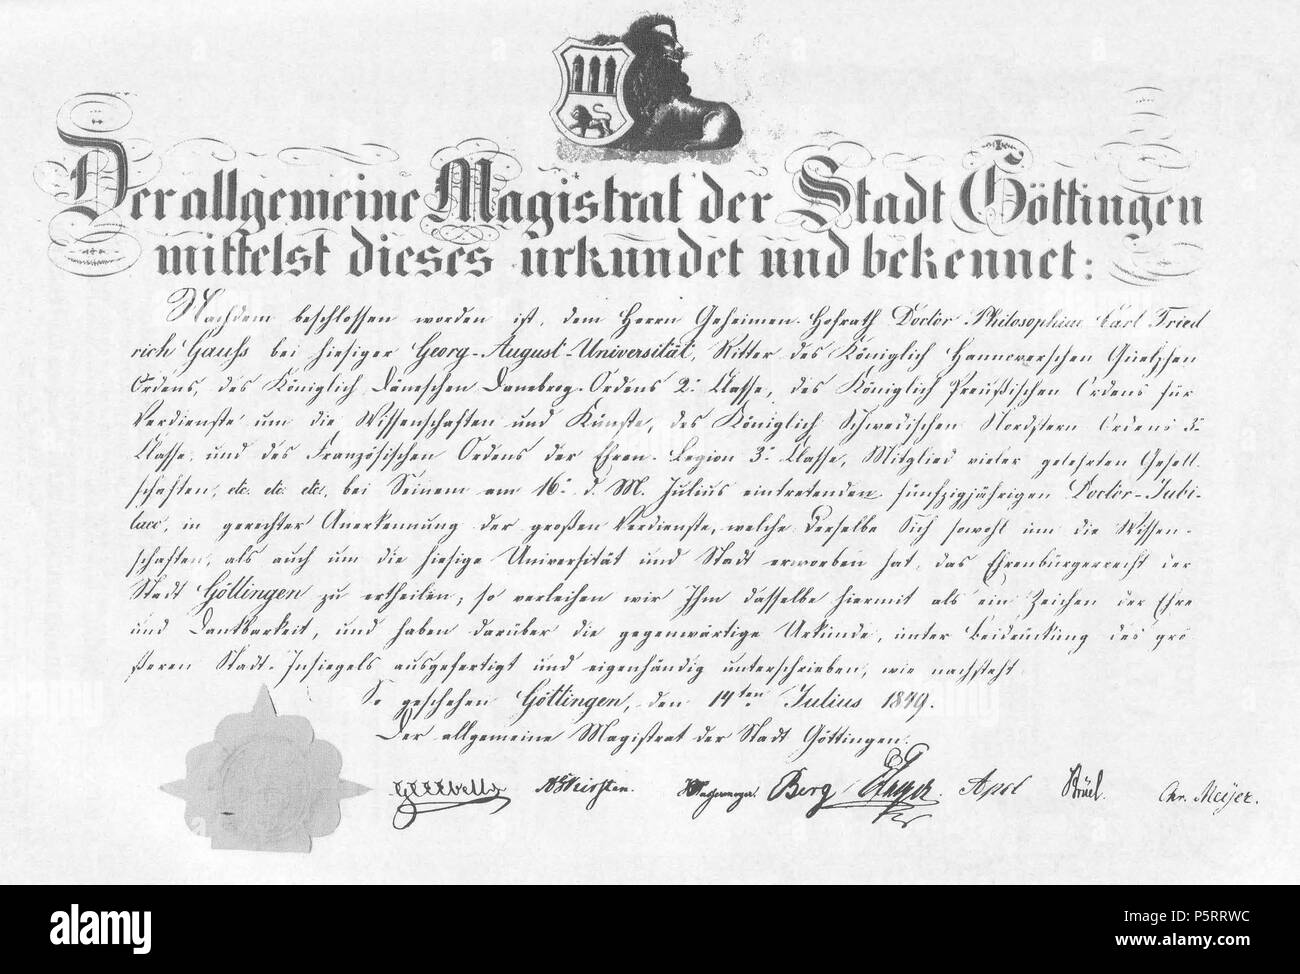 Der allgemeine Magistrat der Stadt Göttingen
mittelst dieses urkundet und bekennet:
Nachdem beschlossen worden ist, dem Herrn Geheimen Hofrath Doctor Philosophiae Carl Fried
rich Gauss bei hiesiger Georg-August-Universität, Ritter des Königlich Hannoverschen Guelphen
Ordens, des Königlich Dänischen Danebrog-Ordens 2r Classe, des Königlich Preußischen Ordens für
Verdienste um die Wissenschaften und Künste, des Königlich Schwedischen Nordstern Ordens 3r
Classe, und des Französischen Ordens der Ehren-Legion 3r Classe, Mitglied vieler gelehrten Gesell
schaften, etc. etc. etc., bei Seinem am 16. d. M. Julius eintretenden fünfzigjährigen Doctor-Jubi-
laeo, in gerechter Anerkennung der großen Verdienste, welche Derselbe Sich sowohl um die Wissen-
schaften, als auch um die hiesige Universität und Stadt erworben hat, das Ehrenbürgerrecht der
Stadt Göttingen zu ertheilen; so verleihen wir Ihm dasselbe hiermit als ein Zeichen der Ehre
und Dankbarkeit, und haben darüber die gegenwärtige Urkunde, unter Beidrückung des grö
ßeren Stadt-Insiegels ausgefertigt und eigenhändig unterschrieben, wie nachsteht.
So geschehen Göttingen, den 14ten Julius 1849.
Der allgemeine Magistrat der Stadt Göttingen.
Berg Apel Brüel. Chr. Meijer.
alamy
Image ID: P5RRWC
www.alamy.com